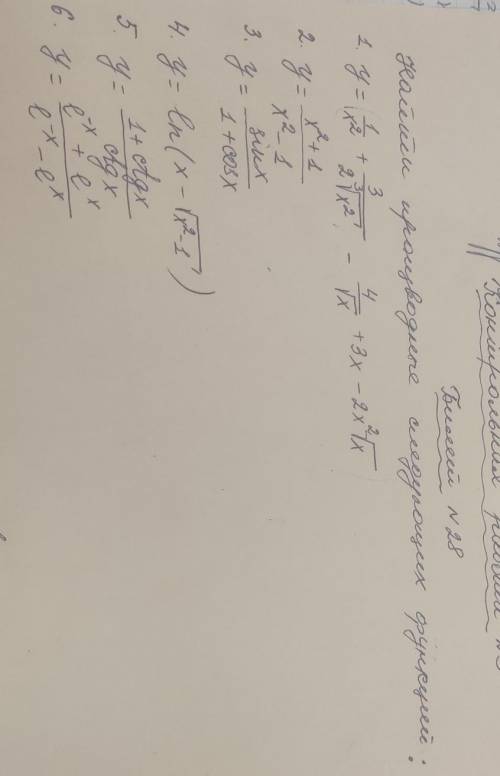 Контрольная работа №3
Билет №28
Найти производные следующих функций:
1. y = 1/x² + 3/(2∛x²) - 4/√x + 3x - 2x²√x
2. y = (x²+1)/(x²-1)
3. y = sinx/(1+cosx)
4. y = ln(x - √(x²-1))
5. y = (1+ctgx)/ctgx
6. y = (e⁻ˣ + eˣ)/(e⁻ˣ - eˣ)